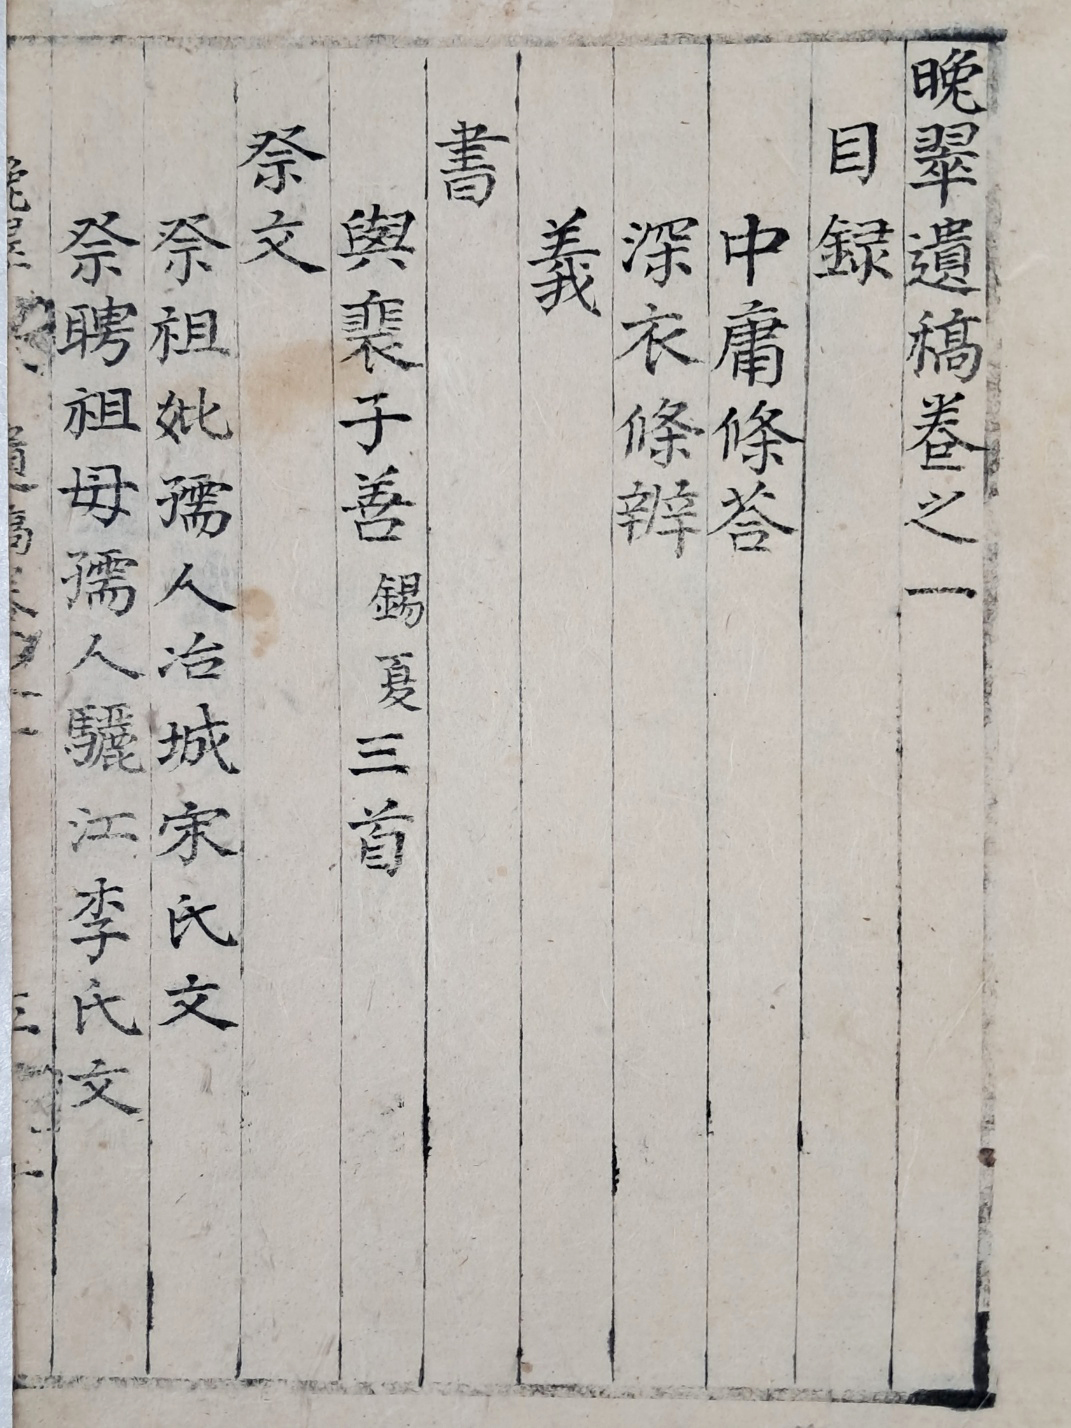 晩翠遺稿巻之一
目録
中庸條荅
深衣條辨
義
書
與裴子善錫夏三首
祭文
祭祖妣孺人冶城宋氏文
祭聘祖母孺人驪江李氏文